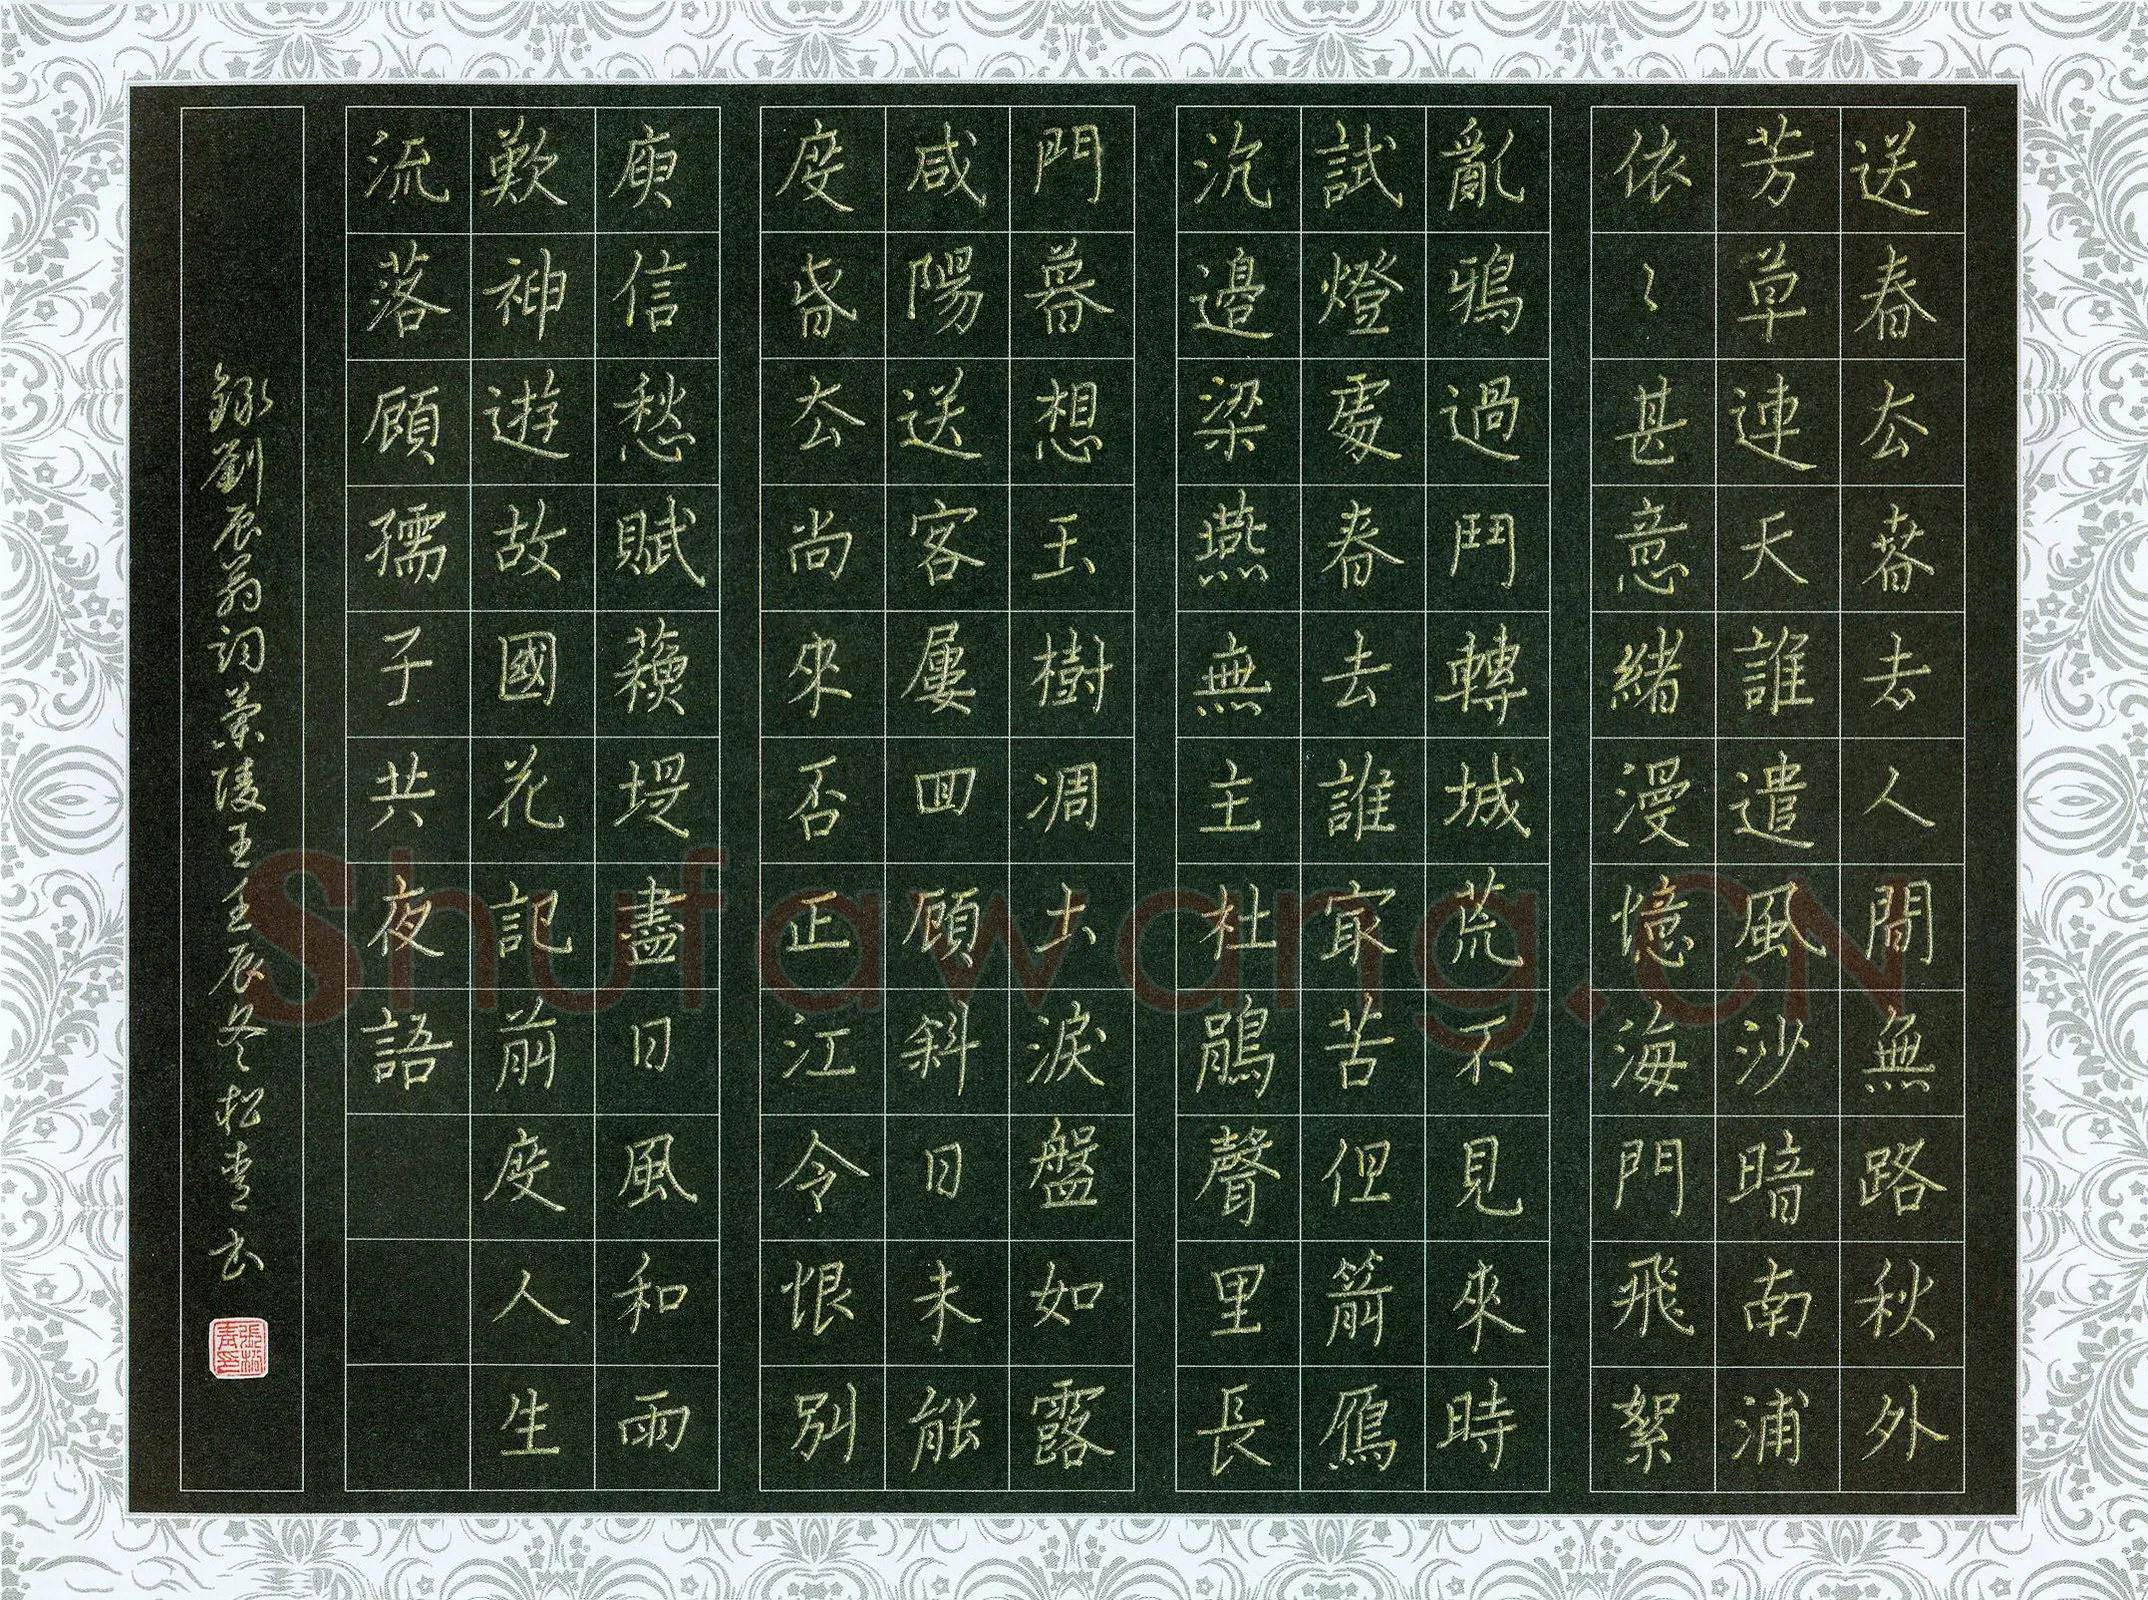 送春去春去人間無路秋外
芳草連天誰遣風沙暗南浦
依〻甚意緒漫憶海門飛絮
亂鴉過鬥轉城荒不見來時
試燈處春去誰冣苦但箭鴈
沉邊梁燕無主杜鵑聲里長
門暮想玉樹凋土淚盤如露
咸陽送客屢回顧斜日未能
度春去尚來否正江令恨別
庾信愁賦蘇堤盡日風和雨
歎神遊故國花記前度人生
流落顧孺子共夜語
錄劉辰翁詞蘭陵王壬辰冬松青書
張松青印
Shufawang.CN